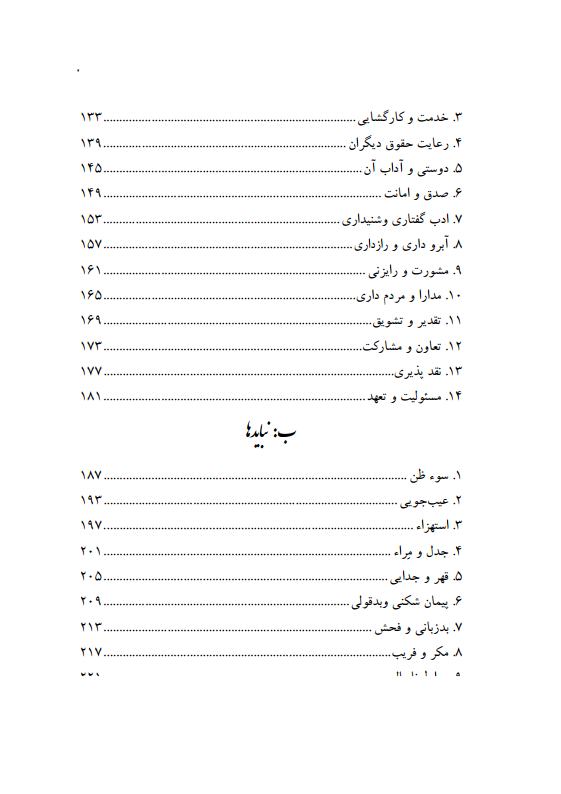 ۳. خدمت و کارگشایی ..................................................................... ۱۳۳
۴. رعایت حقوق دیگران ..................................................................... ۱۳۹
۵. دوستی و آداب آن ..................................................................... ۱۴۵
۶. صدق و امانت ..................................................................... ۱۴۹
۷. ادب گفتاری وشنیداری ..................................................................... ۱۵۳
۸. آبرو داری و رازداری ..................................................................... ۱۵۷
۹. مشورت و رایزنی ..................................................................... ۱۶۱
۱۰. مدارا و مردم داری ..................................................................... ۱۶۵
۱۱. تقدیر و تشویق ..................................................................... ۱۶۹
۱۲. تعاون و مشارکت ..................................................................... ۱۷۳
۱۳. نقد پذیری ..................................................................... ۱۷۷
۱۴. مسئولیت و تعهد ..................................................................... ۱۸۱
ب: نبایدها
۱. سوء ظن ..................................................................... ۱۸۷
۲. عیب‌جویی ..................................................................... ۱۹۳
۳. استهزاء ..................................................................... ۱۹۷
۴. جدل و مِراء ..................................................................... ۲۰۱
۵. قهر و جدایی ..................................................................... ۲۰۵
۶. پیمان شکنی وبدقولی ..................................................................... ۲۰۹
۷. بدزبانی و فحش ..................................................................... ۲۱۳
۸. مکر و فریب ..................................................................... ۲۱۷